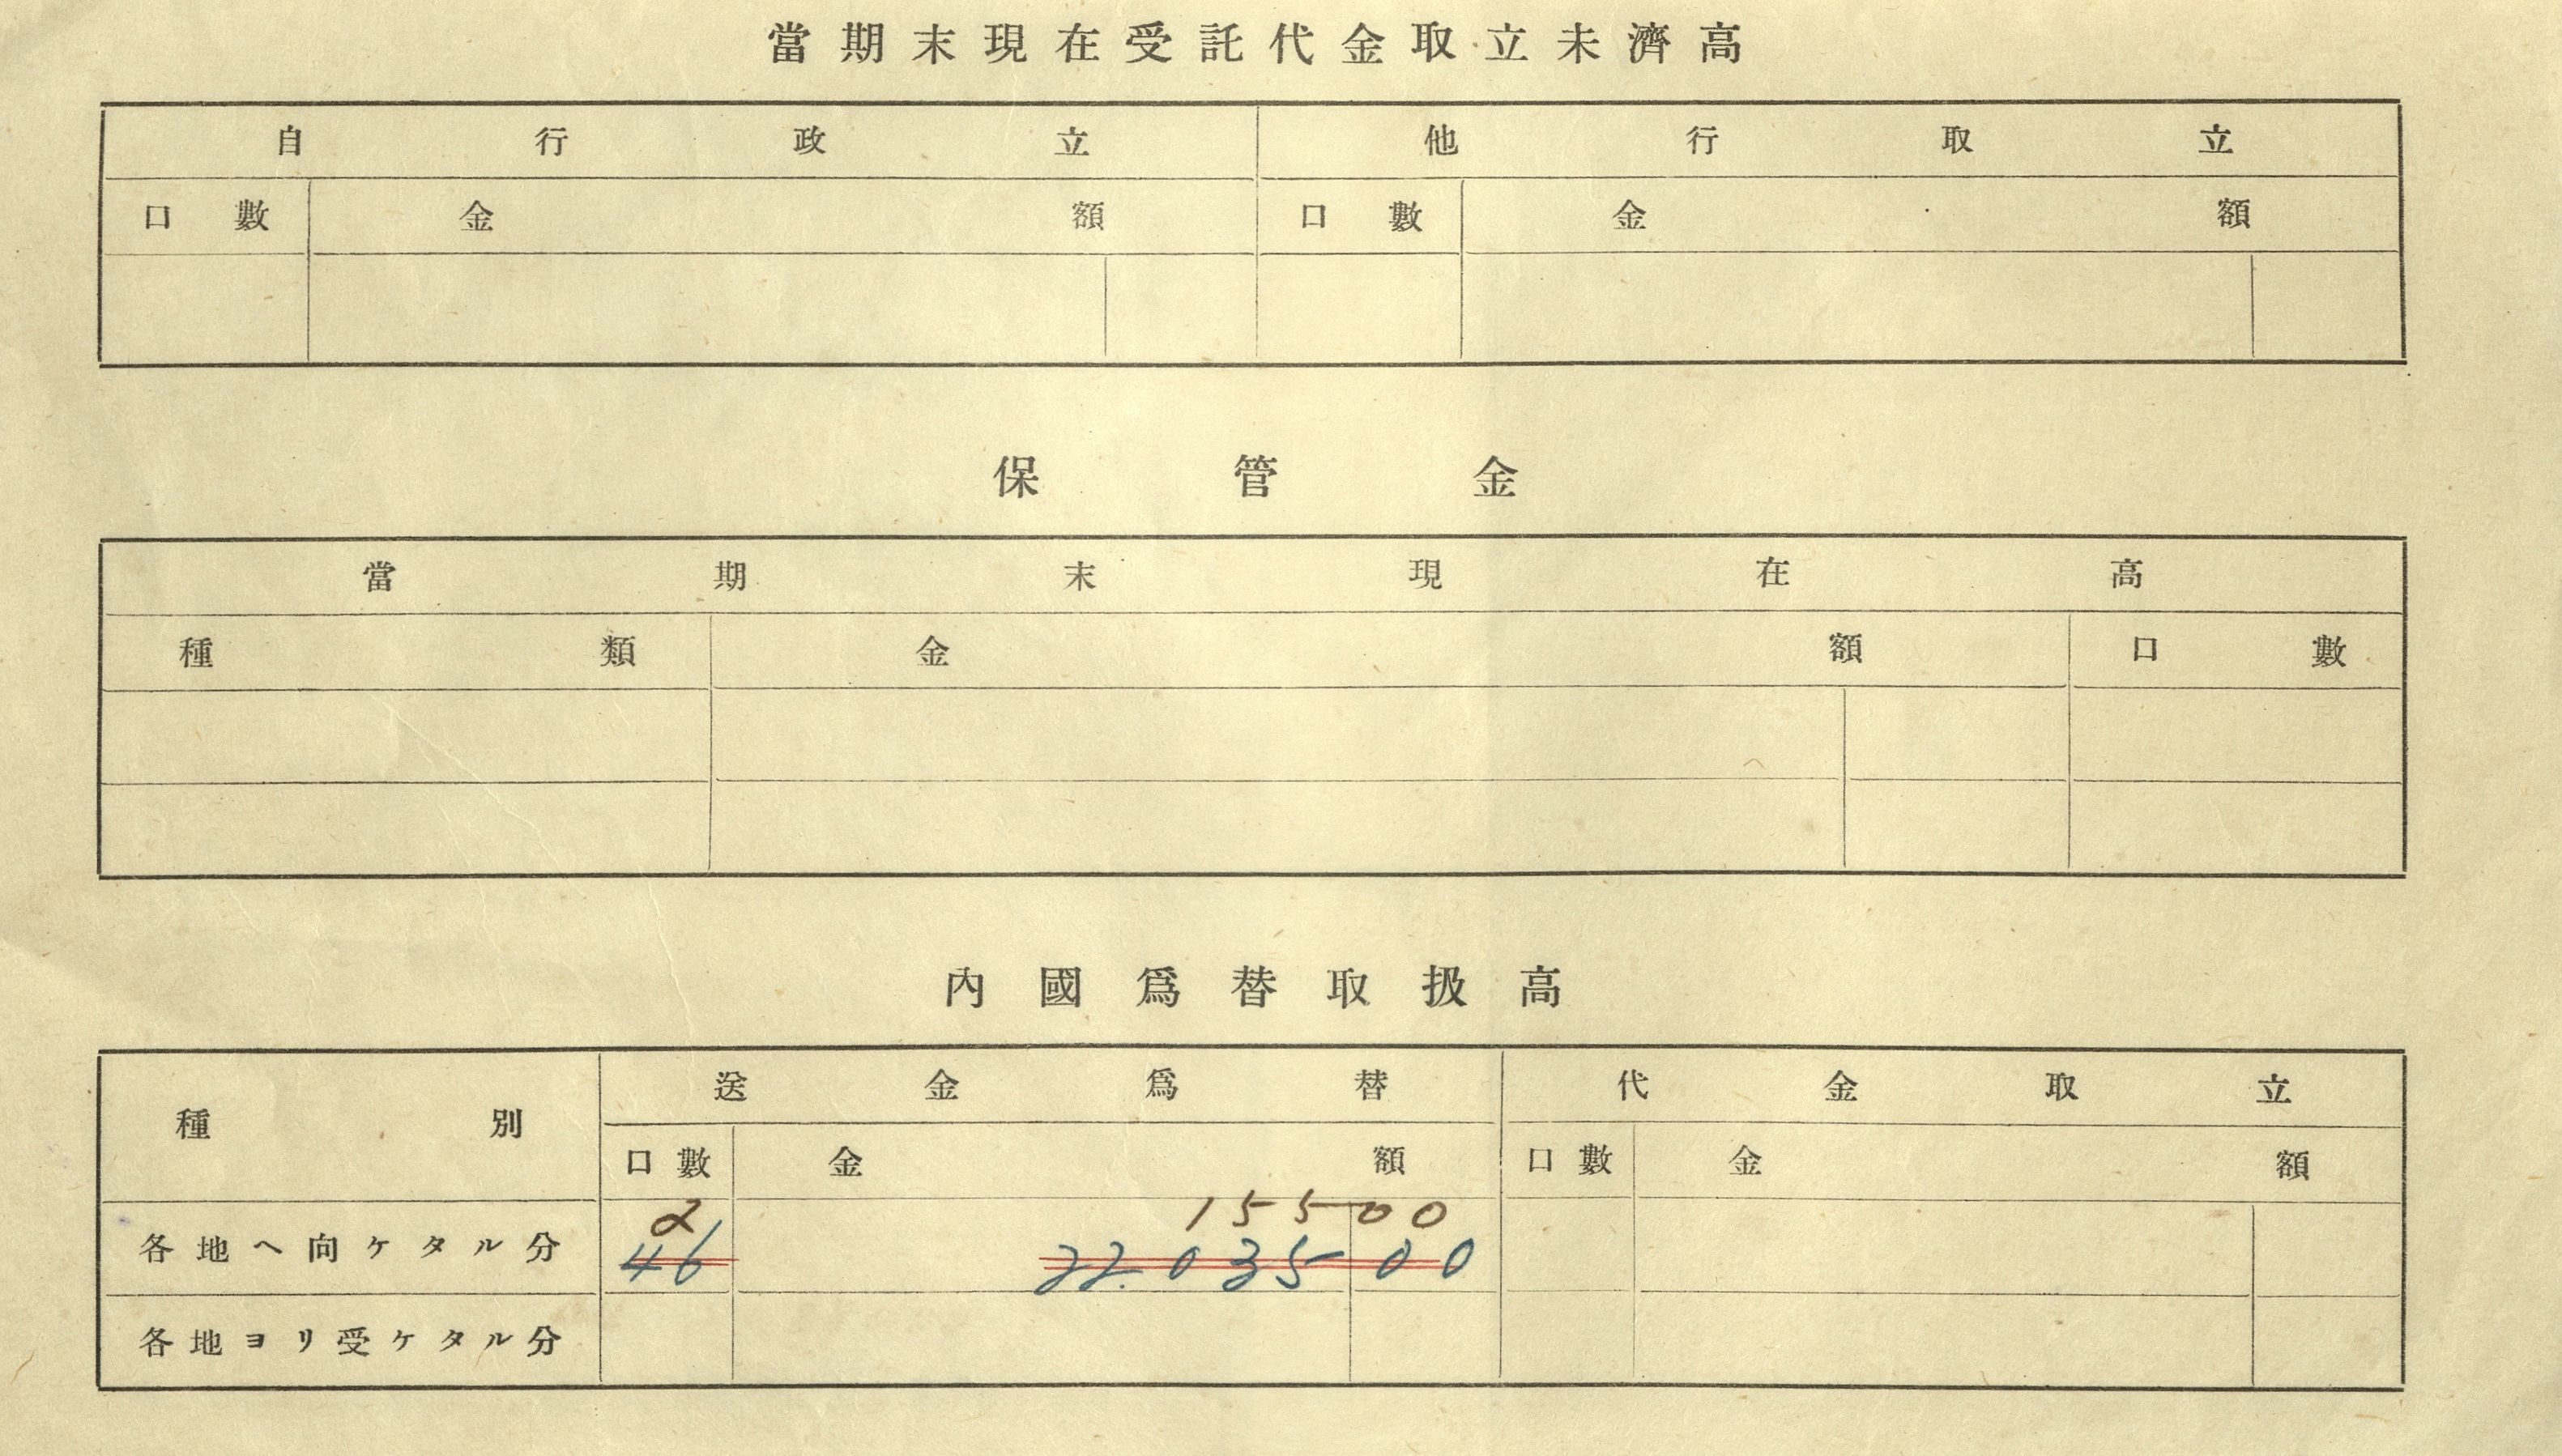 當期末現在受託代金取立未濟高
自行政立 他行取立
口數 金額 口數 金額
保管金
當期末現在高
種類 金額 口數
內國爲替取扱高
種別 送金爲替 代金取立
口數 金額 口數 金額
2 155 00
各地ヘ向ケタル分 46 22.035 00
各地ヨリ受ケタル分